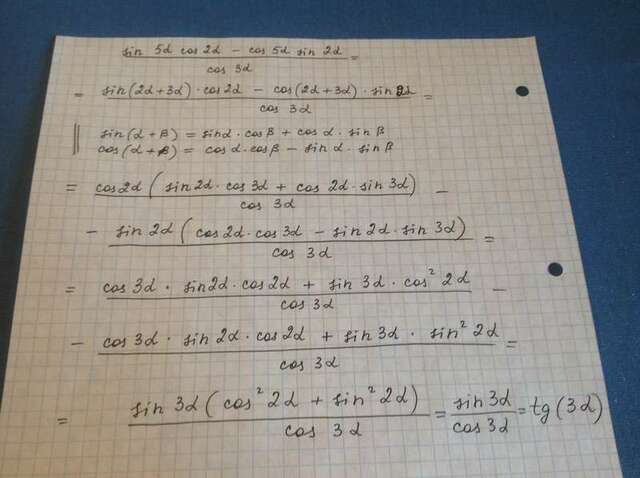 sin 5α cos 2α - cos 5α sin 2α / cos 3α =
= sin(2α+3α) · cos 2α - cos(2α+3α) · sin 2α / cos 3α =
sin(α+β) = sinα · cosβ + cosα · sinβ
cos(α+β) = cosα · cosβ - sinα · sinβ
= cos 2α (sin 2α · cos 3α + cos 2α · sin 3α) / cos 3α -
- sin 2α (cos 2α · cos 3α - sin 2α · sin 3α) / cos 3α =
= cos 3α · sin 2α · cos 2α + sin 3α · cos² 2α / cos 3α -
- cos 3α · sin 2α · cos 2α + sin 3α · sin² 2α / cos 3α =
= sin 3α (cos² 2α + sin² 2α) / cos 3α = sin 3α / cos 3α = tg(3α)